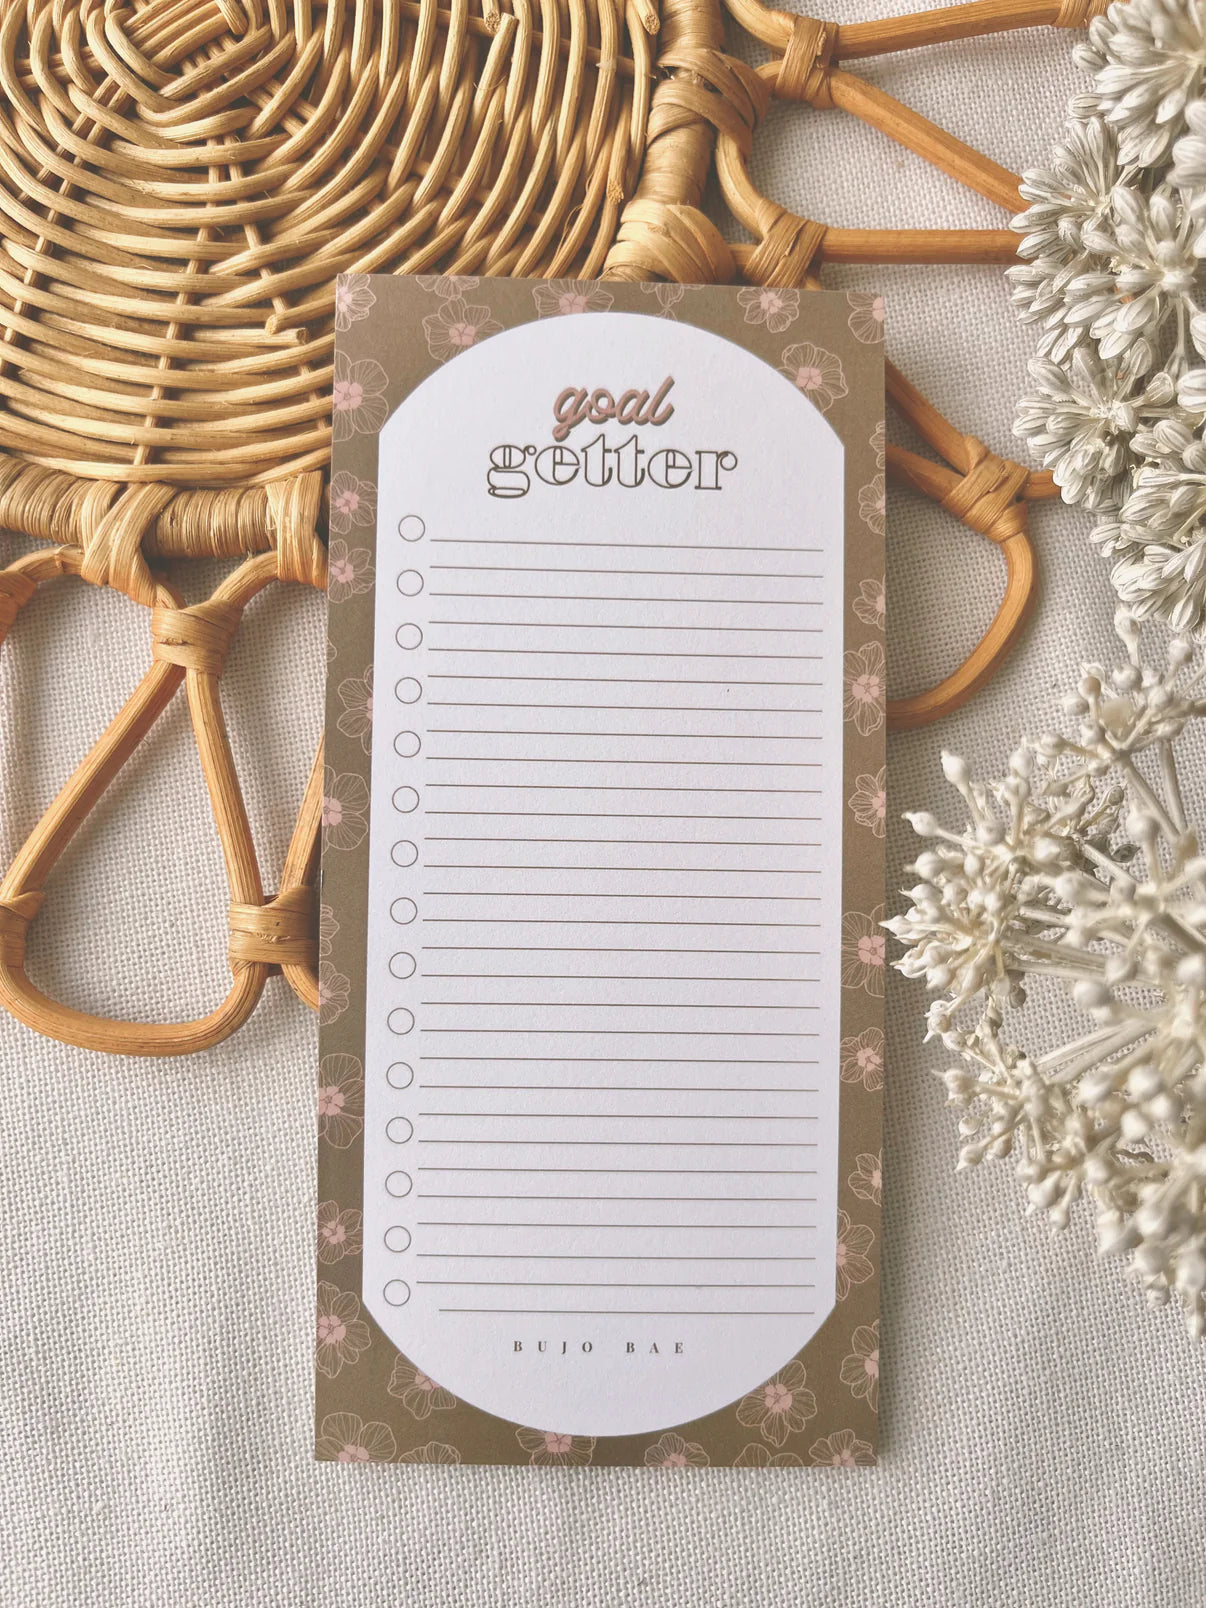 goal
getter
BUJO BAE